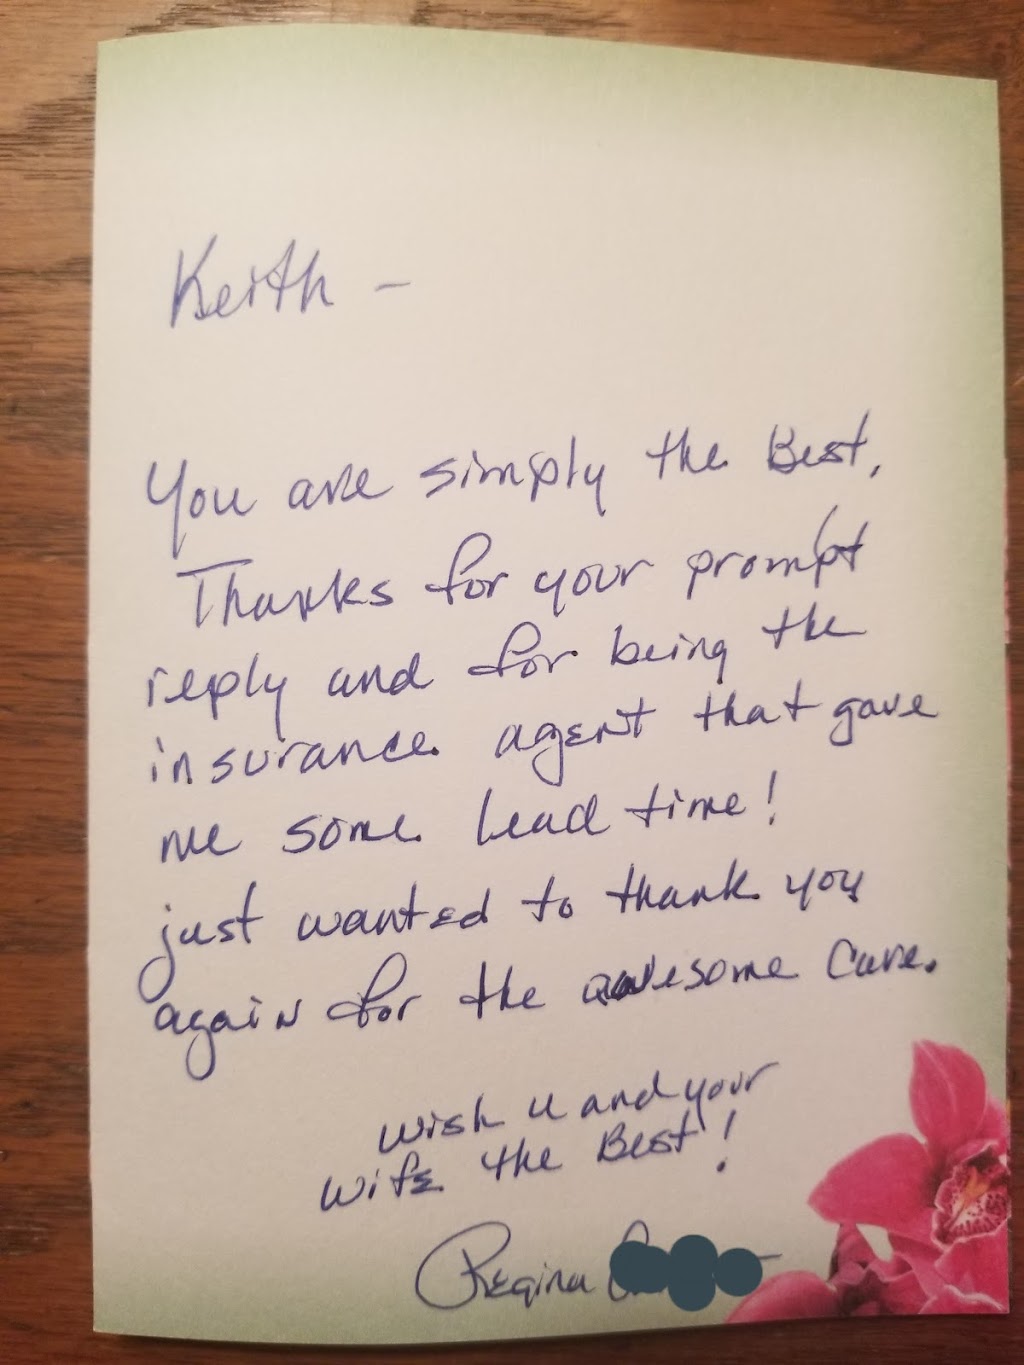 Keith -
You are simply the Best,
Thanks for your prompt
reply and for being the
insurance agent that gave
me some lead time!
just wanted to thank you
again for the awesome care.
wish u and your
wife the Best!
Regina